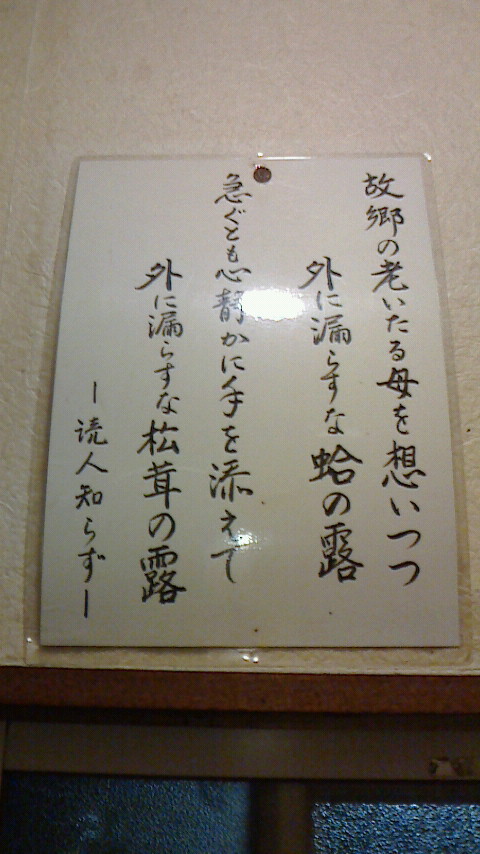 故郷の老いたる母を想いつつ
外に漏らすな蛤の露
急ぐとも心静かに手を添えて
外に漏らすな松茸の露
ー読人知らずー